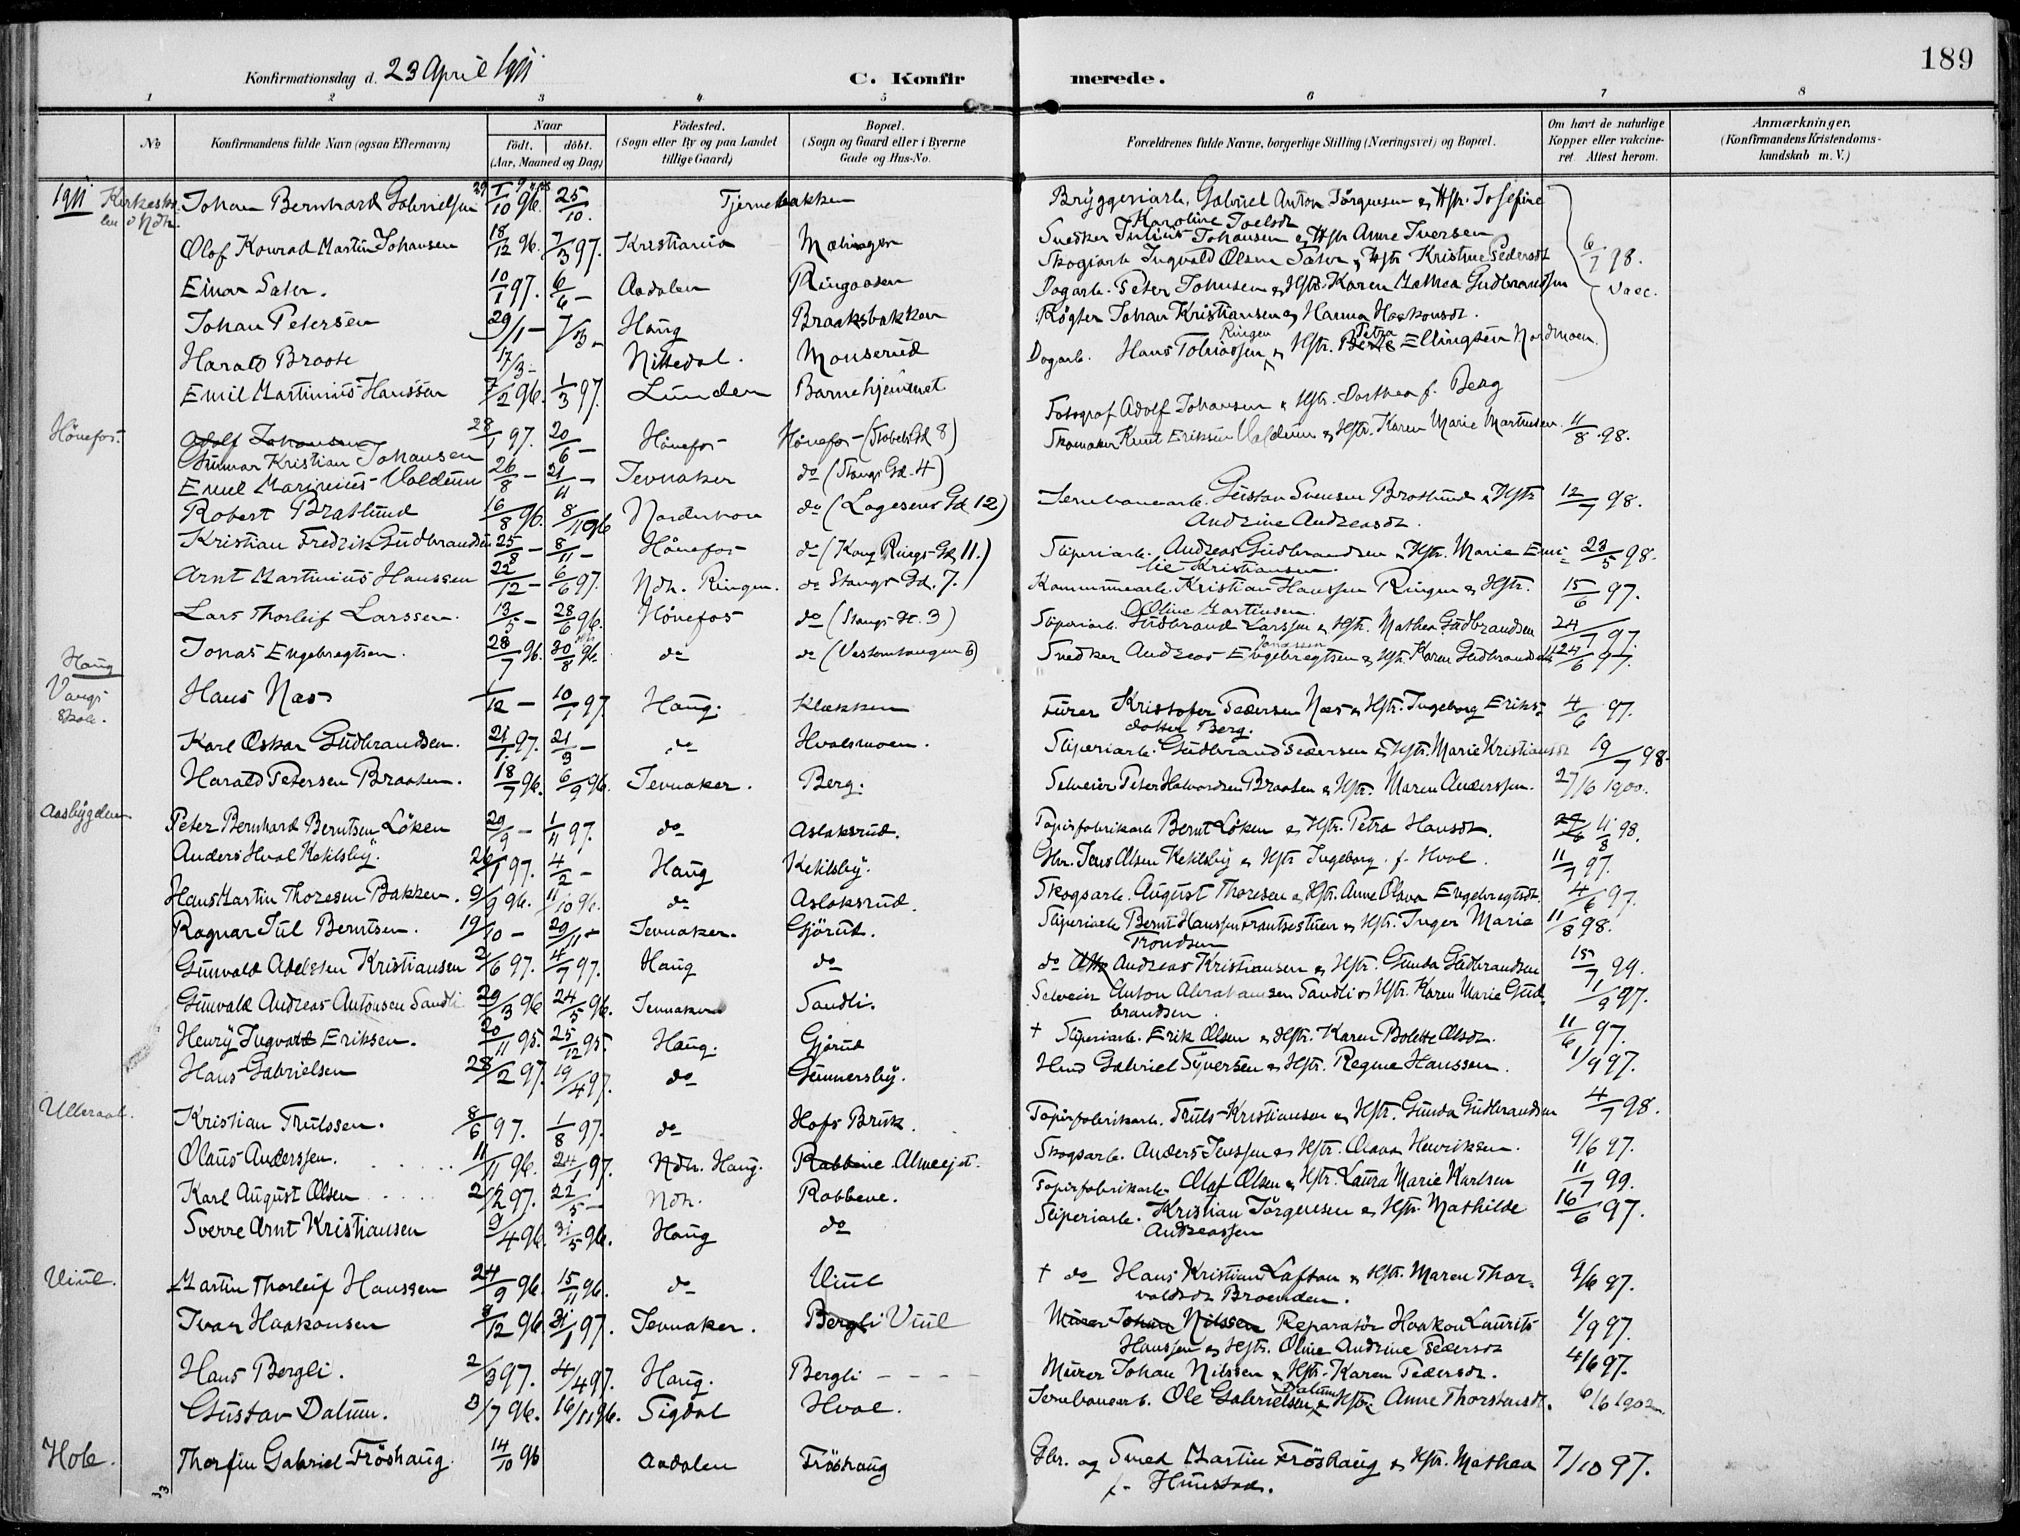 189
Konfirmationsdag d. 23 April 1911
C. Konfirmerede.
1 2 3 4 5 6 7 8
No
Konfirmandens fulde Navn (ogsaa Efternavn)
Naar
født. døbt.
(Aar, Maaned og Dag)
Fødested.
(Sogn eller By og paa Landet
tillige Gaard)
Bopæl.
(Sogn og Gaard eller i Byerne
Gade og Hus-No.
Forældrenes fulde Navne, borgerlige Stilling (Næringsvei) og Bopæl.
Om havt de naturlige
Kopper eller vakcine-
ret Attest herom.
Anmærkninger.
(Konfirmandens Kristendoms-
kundskab m. V.)
1911 Johan Bernhard Gabrielsen 96. 25/10. Tjernsbakken Bryggeriarb. Gabriel Anton Jørgensen & Hstr. Josefine
Karoline Joelsdt
Olof Konrad Martin Johansen 18/12 96. 7/3 97. Kristiania Mælingen Snedker Julius Johansen & Hstr Anne Iversen 6/7 98.
Einar Sater. 10/1 97. 6/6 – Aadalen Ringaasen Skogsarb Ingvald Olsen Sater & Hstr Kristine Pedersdt vacc.
Johan Petersen 29/1 – 7/3 – Haug Braaksbakken Dagarb. Peter Johnsen & Hstr. Karen Mathea Gudbrandsen
Harald Braate 17/3 – Nittedal. Monserud Røgter Johan Kristiansen & Hanna Haakonsdt.
Emil Martinius Hanssen 7/2 96. 1/3 97. Lunden Barnehjemmet Dagarb. Hans Tobiassen Ringen & Hstr. Petra Ellingsen Nordmoen
Hönefos. Adolf Johansen
Gunnar Kristian Johansen 28/1 97. 20/6 – Hönefos Hönefos – 8) Fotograf Adolf Johansen & Hstr. Dorthea f. Berg
Emil Marinius Valdum 26/8 – 21/11 – Jevnaker do (Stangs Gd. 4) Skomaker Knut Eriksen Valdum & Hstr. Karen Marie Martinsen 11/8 98.
Robert Bratlund 16/8 96. 8/11 96 Norderhov do (Lagesens Gd 12) Jernbanearb. Gustav Svensen Bratlund & Hstr 12/7 98.
Andrine Andreasdt.
Kristian Fredrik Gudbrandsen 25/8 – 8/11 – Hönefos do (Kong Rings Gd 11.) Sliperiarb. Andreas Gudbrandsen & Hstr. Marie Emi- 23/5 98.
lie Kristiansen.
Arnt Martinius Hanssen 22/12 – 6/6 97. Ndh. Ringen. do Stangs Gd. 7. Kommunearb. Kristian Hanssen Ringen & Hstr. 15/6 97.
Oline Martinsen.
Lars Thorleif Larssen. 13/5 – 28/6 96. Hönefos do (Stangs Gt. 3) Sliperiarb. Gudbrand Larssen & Hstr. Mathea Gudbrandsen 24/7 97.
Jonas Engebregtsen. 28/7 96. 30/8 96. do do (Vesterntangen 6) Snedker Andreas Engebregtsen & Hstr. Karen Gudbrandsen 24/6 97.
Haug
Vangs
Skole.
Hans Næs 1/12 – 10/1 97. Haug. Klækken Murer Kristofer Pedersen Næs & Hstr. Ingeborg Eriks- 4/6 97.
datter Berg.
Karl Oskar Gudbrandsen. 21/1 97. 21/3 – do Hvalsmoen. Sliperiarb. Gudbrand Pedersen & Hstr. Marie Kristiansdt 19/7 98.
Harald Petersen Braaten. 18/7 96. 6/9 96. Jevnaker. Berg. Selveier Peter Halvordsen Braaten & Hstr. Maren Anderssen. 27/6 1900.
Aasbygden Peter Bernhard Berntsen Löken 29/9 – 1/11 97. do Aslaksrud. Papirfabrikarb Bernt Löken & Hstr. Petra Hansdt. 11/8 98.
Anders Hval Kehlsby. 26/1 97. 4/2 – Haug Kehlsby. Gbr. Jens Olsen Kehlsby & Hstr Ingeborg f. Hval. 11/7 97.
Hans Martin Thoresen Bakken. 9/9 96. 11/10 96. do Aslaksrud. Skogsarb. August Thoresen & Hstr. Anne Olava Engebregtsdt. 4/6 97.
Ragnar Jul Berntsen. 19/10 – 29/11 – Jevnaker. Gjörud. Sliperiarb Bernt Hanssen Frantsestuen & Hstr. Inger Marie 11/8 98.
Trondsen
Gunvald Adelsten Kristiansen 2/6 97. 4/7 97. Haug do do Andreas Kristiansen & Hstr. Gunda Gudbrandsen 15/7 99.
Gunvald Andreas Antonsen Sandli 29/3 96 24/5 96. Jevnaker Sandli. Selveier Anton Abrahamsen Sandli & Hstr. Karen Marie Gud- 1/9 97.
brandsen
Henry Ingvald Eriksen. 20/11 95. 25/12 95. Haug. Gjörud † Sliperiarb. Erik Olsen & Hstr. Karen Bolette Olsdt. 11/6 97.
Hans Gabrielsen 28/2 97. 19/4 97. do Gunnersby. Hmd Gabriel Syversen & Hstr. Regine Hanssen. 1/9 97.
Ulleraal. Kristian Trulssen. 8/6 97. 1/8 97. do Hofs Bruk. Papirfabrikarb. Truls Kristiansen & Hstr. Gunda Gudbrandsen 4/7 98.
Olaus Anderssen. 11/11 96. 24/1 97. Ndh. Haug. Rabbene Almeejet. Skogsarb. Anders Jenssen & Hstr. Olava Henriksen. 9/6 97.
Karl August Olsen 2/2 97. 22/5 – Ndh. Rabbene. Papirfabrikarb. Olaf Olsen & Hstr. Laura Marie Karlsen 11/7 99.
Sverre Arnt Kristiansen 9/4 96. 31/5 96. Haug do Sliperiarb. Kristian Jörgensen & Hstr. Mathilde 16/6 97.
Andreassen
Viul. Martin Thorleif Hanssen 24/9 96. 15/11 96. do Viul † do Hans Kristian Lafton & Hstr. Maren Thor- 9/6 97.
valdsdt Braenden.
Ivar Haakonsen 8/12 96. 31/1 97. Jevnaker. Bergli Viul Murer Johan Nilssen Reparatør Haakon Laurits 1/9 97.
Hanssen & Hstr. Oline Andrine Pedersdt
Hans Bergli. 2/3 97. 4/4 97. Haug. Bergli – – – Murer Johan Nilssen & Hstr. Karen Pedersdt. 4/6 97.
Gustav Dalum. 3/7 96. 16/11 96. Sigdal Hval. Jernbanearb. Ole Gabrielsen Dalum & Hstr. Anne Thorstensdt. 6/6 1902
Hole. Thorfin Gabriel Fröshaug. 14/10 96 Aadalen Fröshaug Gbr. og Smed Martin Fröshaug & Hstr. Mathea 7/10 97.
f. Hunstad.
33